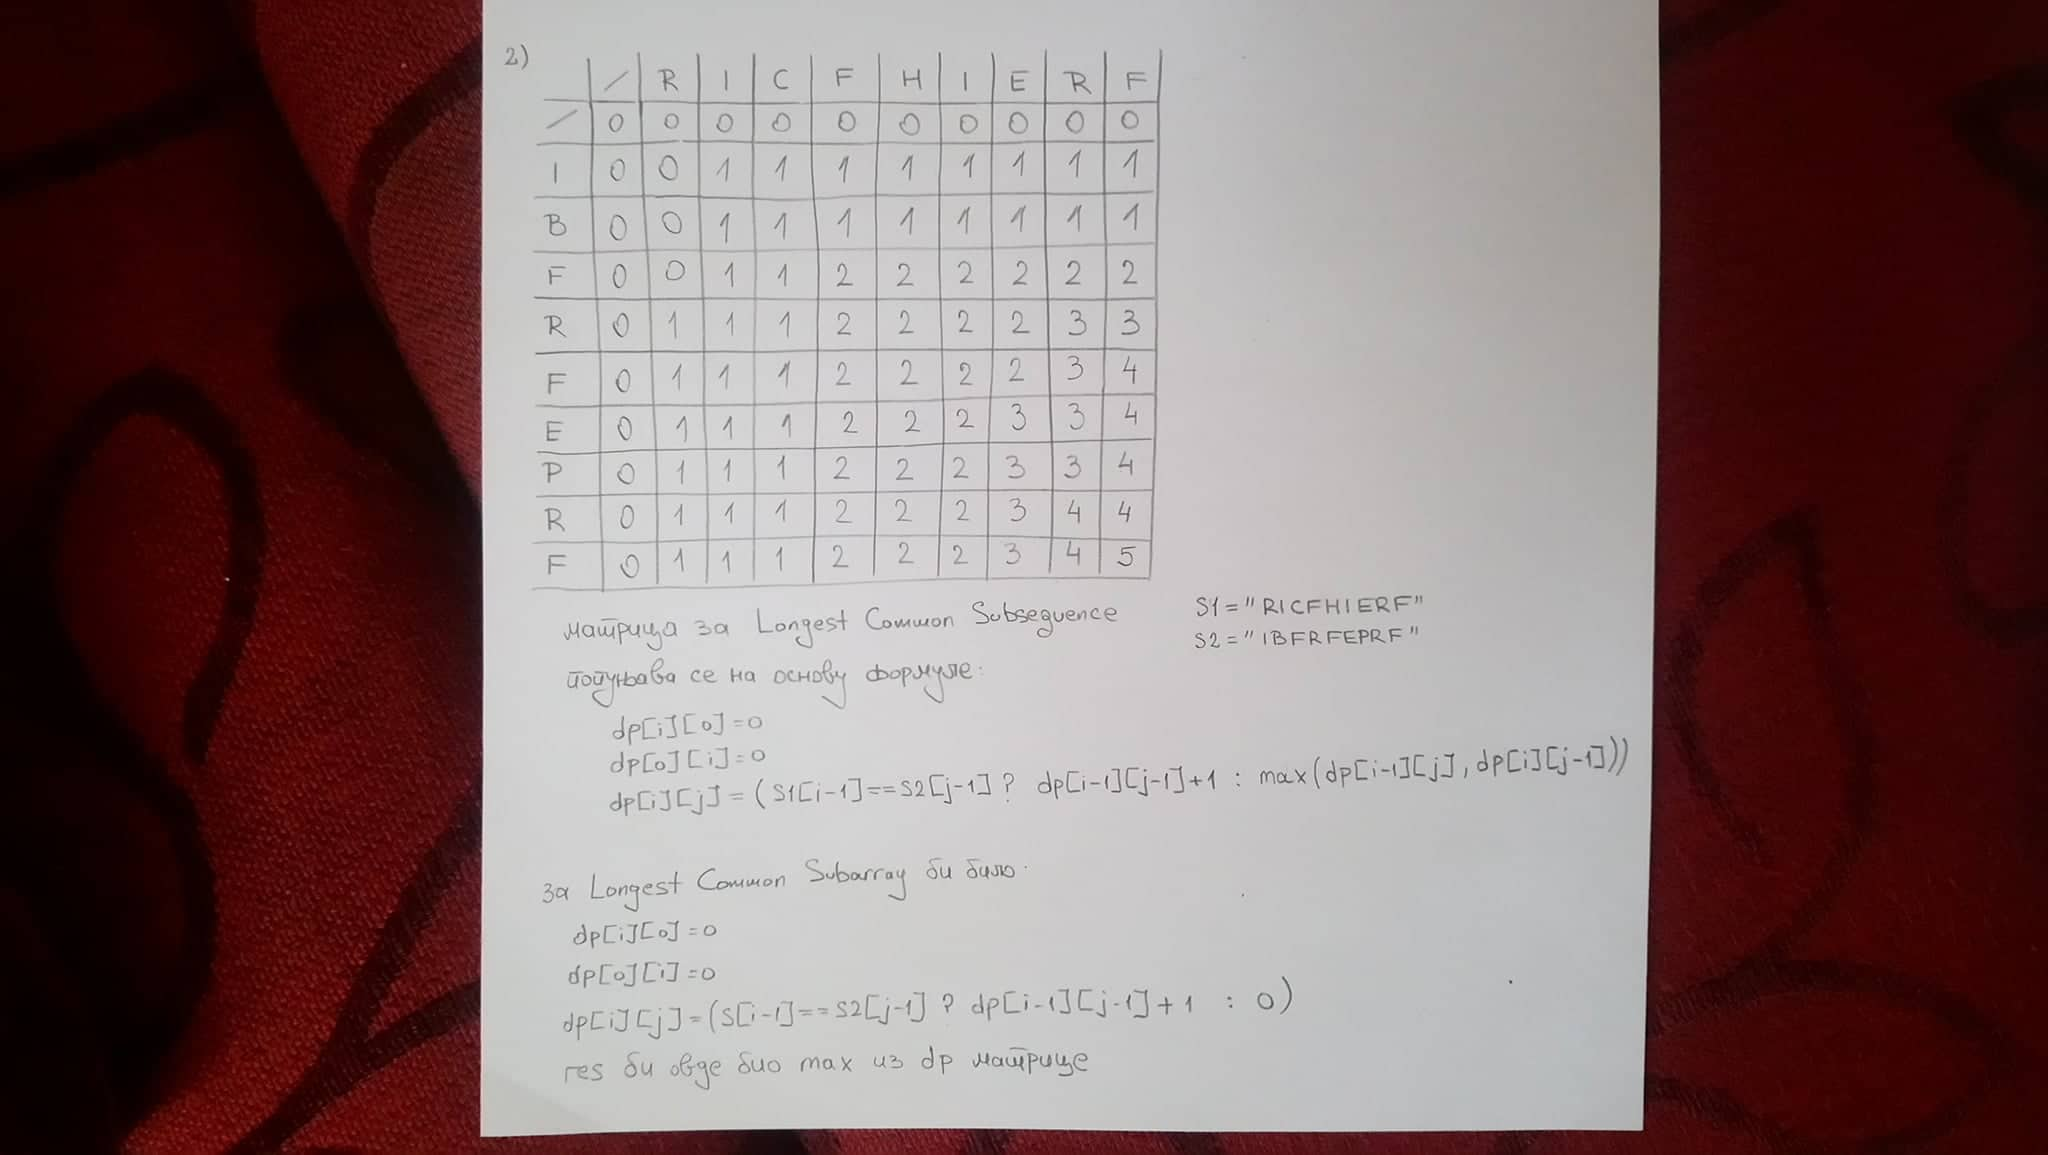 2)
/ R I C F H I E R F
/ 0 0 0 0 0 0 0 0 0 0
I 0 0 1 1 1 1 1 1 1 1
B 0 0 1 1 1 1 1 1 1 1
F 0 0 1 1 2 2 2 2 2 2
R 0 1 1 1 2 2 2 2 3 3
F 0 1 1 1 2 2 2 2 3 4
E 0 1 1 1 2 2 2 3 3 4
P 0 1 1 1 2 2 2 3 3 4
R 0 1 1 1 2 2 2 3 4 4
F 0 1 1 1 2 2 2 3 4 5
матрица за Longest Common Subsequence
S1="RICFHIERF"
S2="IBFRFEPRF"
попуњава се на основу формуле:
dp[i][0]=0
dp[0][i]=0
dp[i][j]=(S1[i-1]==S2[j-1]? dp[i-1][j-1]+1 : max(dp[i-1][j], dp[i][j-1]))
за Longest Common Subarray би било:
dp[i][0]=0
dp[0][i]=0
dp[i][j]=(S[i-1]==S2[j-1] ? dp[i-1][j-1]+1 : 0)
res би овде био max из dp матрице